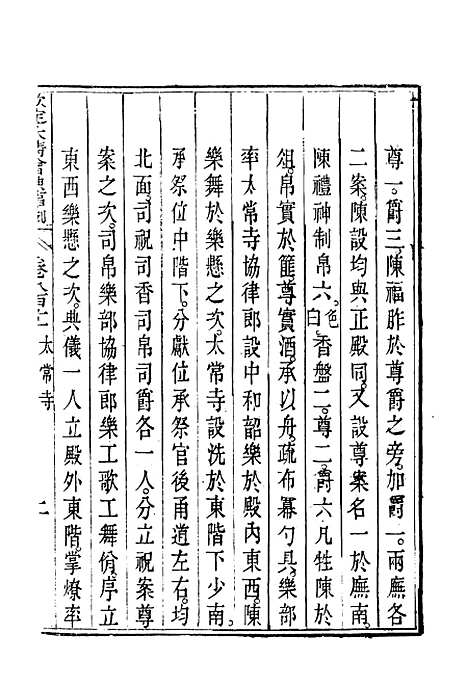 尊一。爵三。陳福胙於尊爵之旁。加爵一。兩廡各
二案。陳設均與正殿同。又設尊案各一於廡南。
陳禮神制帛六。色白。香盤二。尊二。爵六。凡牲陳於
俎。帛實於篚。尊實酒。承以舟。疏布冪勺具。樂部
率太常寺協律郎設中和韶樂於殿內東西。陳
樂舞於樂懸之次。太常寺設洗於東階下少南。
承祭位中階下。分獻位承祭官後甬道左右。均
北面。司祝司香司帛司爵各一人。分立祝案尊
案之次。司帛樂部協律郎樂工歌工舞佾。序立
東西樂懸之次。典儀一人立殿外東階。掌燎率
欽定大清會典事例 卷八百 太常寺